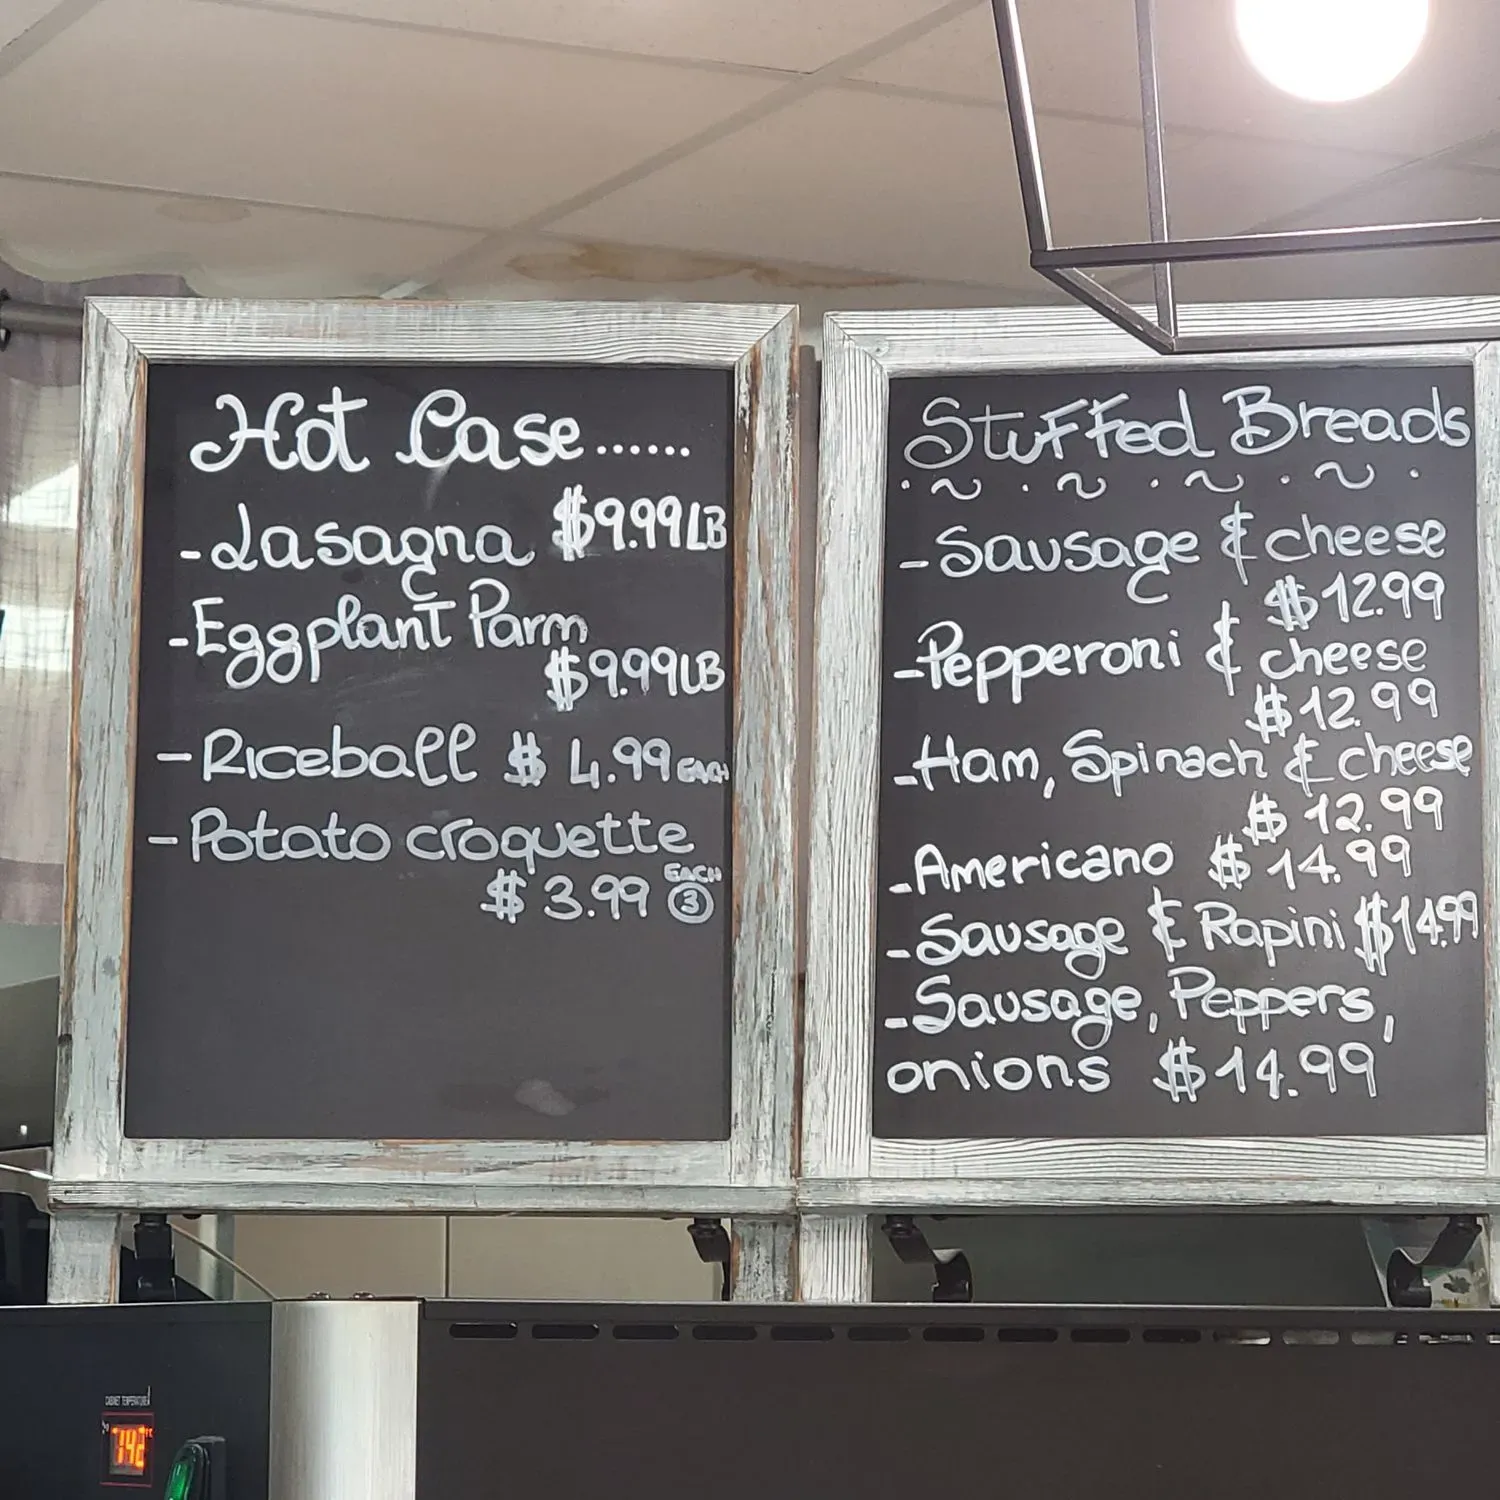 Hot Case......
-Lasagna $9.99LB
-Eggplant Parm
$9.99LB
-Riceball $4.99 EACH
-Potato croquette
$3.99 EACH 3
Stuffed Breads
-Sausage & cheese
$12.99
-Pepperoni & cheese
$12.99
-Ham, Spinach & cheese
$12.99
-Americano $14.99
-Sausage & Rapini $14.99
-Sausage, Peppers,
onions $14.99
CABINET TEMPERATURE
142